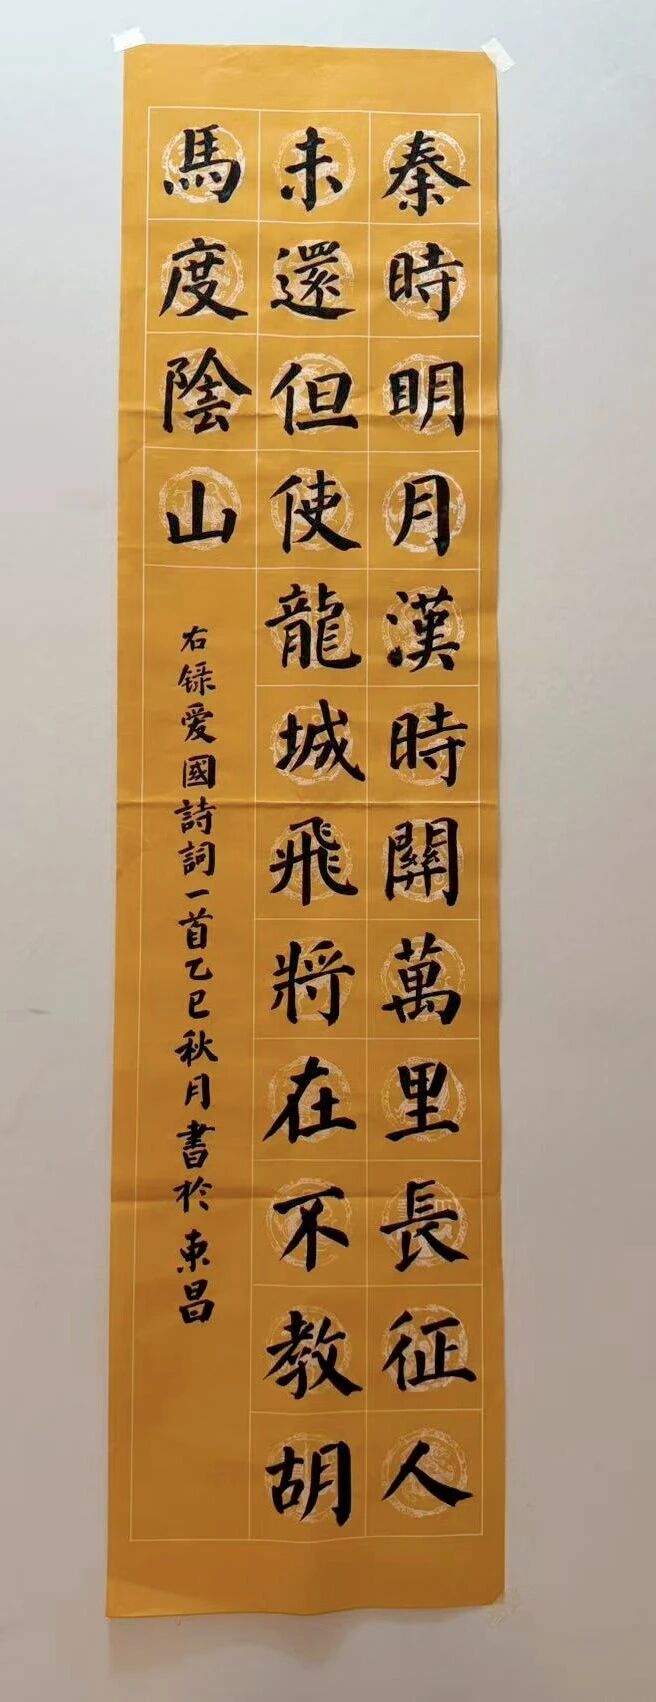 秦時明月漢時關萬里長征人
未還但使龍城飛將在不教胡
馬度陰山
右録爱國詩詞一首乙巳秋月書於東昌